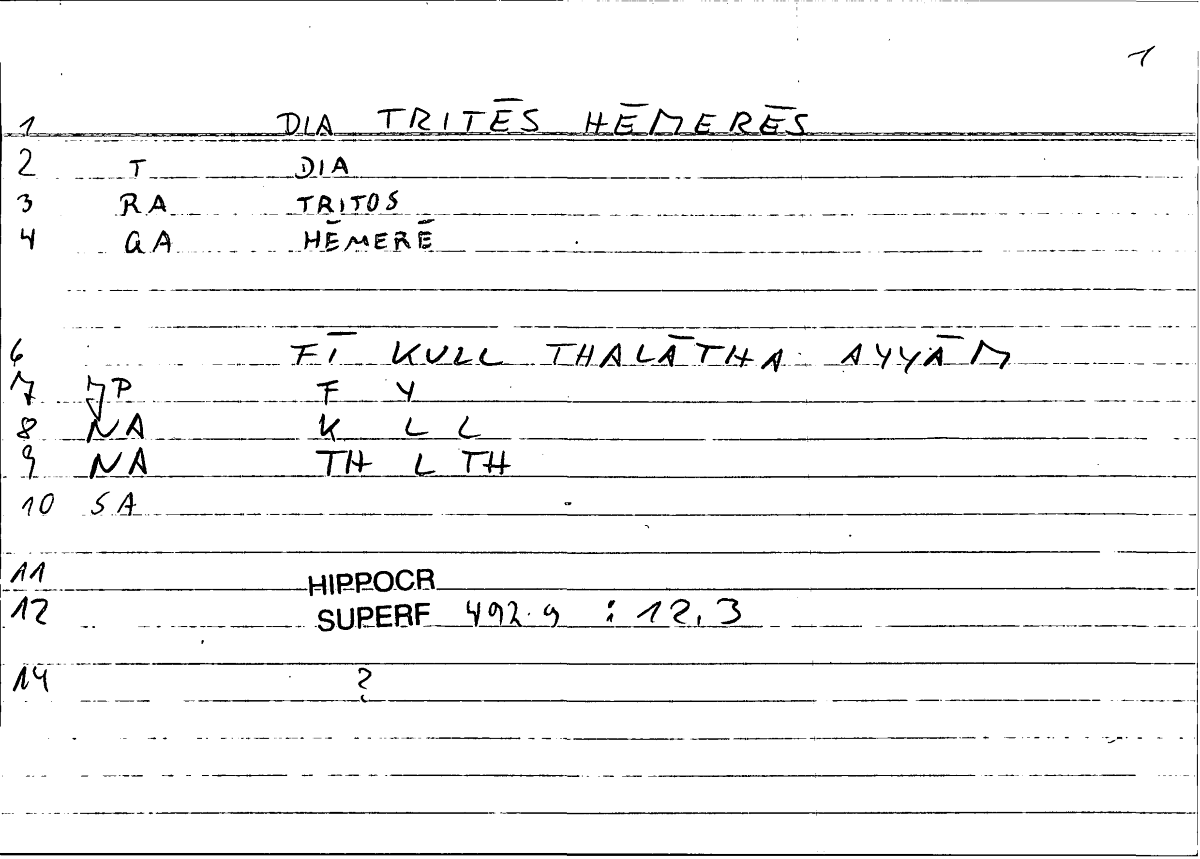 1
1 DIA TRITĒS HĒMERĒS
2 T DIA
3 RA TRITOS
4 QA HĒMERĒ
6 FĪ KULL THALĀTHA AYYĀM
7 MP F Y
8 NA K L L
9 NA TH L TH
10 SA
11 HIPPOCR
12 SUPERF 492.9 : 12,3
14 ?